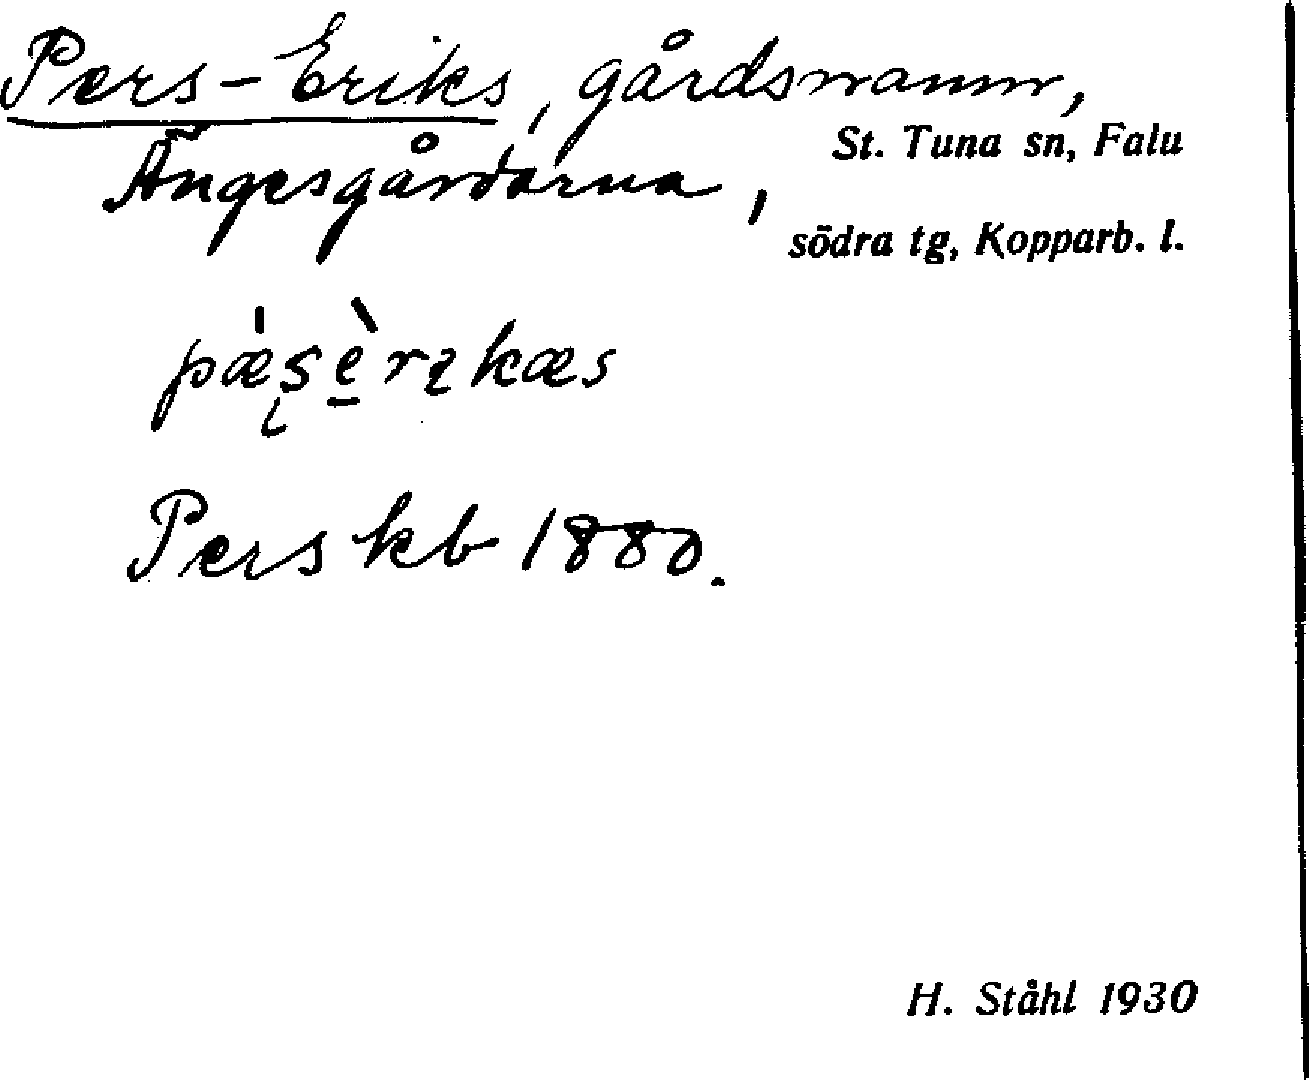 Pers-Eriks, gårdsnamn,
St. Tuna sn, Falu
Ängesgårdarna,
södra tg, Kopparb. l.
pæ̍ʂè̱rɩkæs
Pers kb 1880.
H. Ståhl 1930